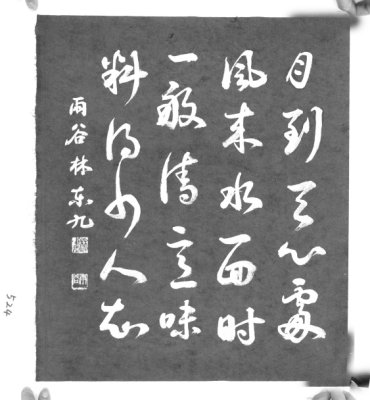 月到天心處
風来水面时
一般清意味
料得少人知
雨谷林东九
524